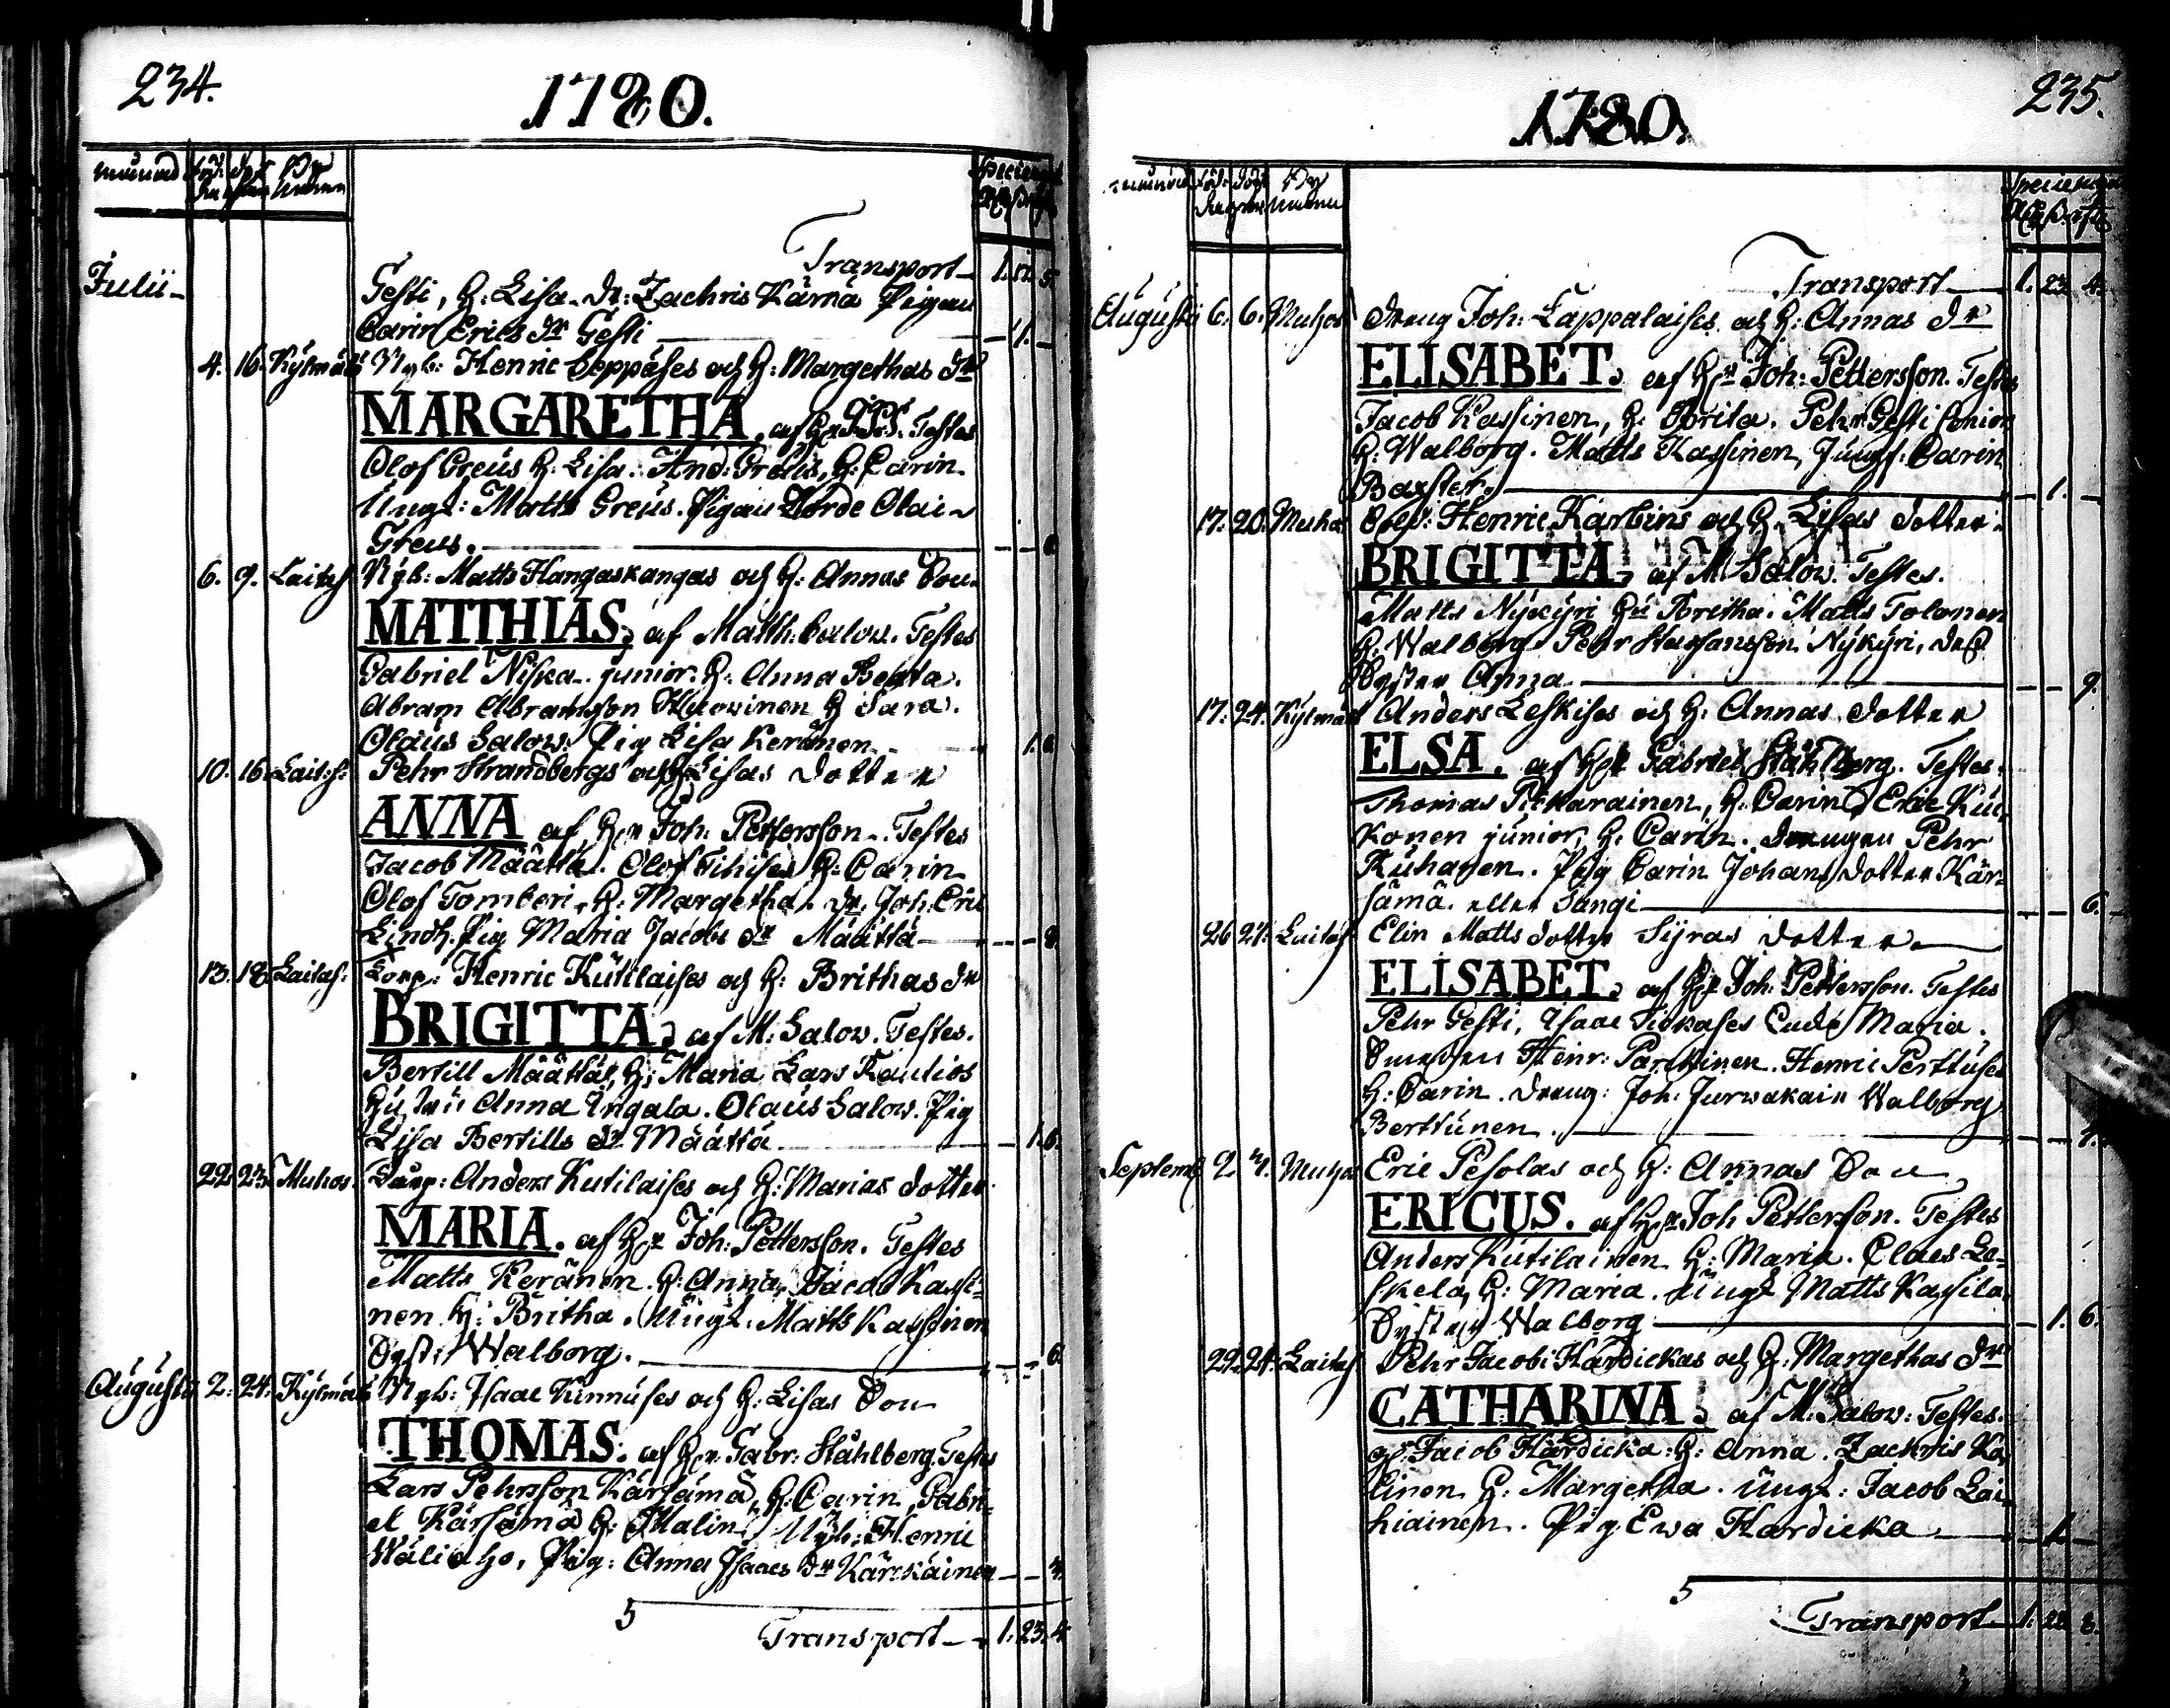 234.
1780.
månad
Transport 1.
Julii
Gesti, H: Lisa. Dr: Zachris Kärnä Pigan
Carin Erics dr Gesti 1.
4. 16. Kÿlmälä Nyb: Henric Seppäses och H: Margethas dr
MARGARETHA, af Hr Testes
Olof Greüs H: Lisa. And: Greüs, H: Carin
Ungk: Matts Greüs. Pigan Olai
Greus. 6.
6. 9. Laitas: Nÿb: Matts Hangaskangas och H: Annas Son
MATTHIAS, af Matth: Salow. Testes
Gabriel Niska junior. H: Anna Beata.
Abram Abramsson Huowinen H Sara.
Olaüs Salow. Pig Lisa Keränen 1. 6.
10. 16. Lait:s: Pehr Strandbergs och H: Lisas dotter
ANNA af Hr Joh: Pettersson. Testes
Jacob Määttä. Olof Tihises H: Carin
Olof Tomberi, H: Margetha. Dr. Joh: Eric
Lindh. Pig Maria Jacobs dr Määttä 8.
13. 18. Laitas: Korp: Henric Kütilaises och H: Brithas dr
BRIGITTA, af M: Salow. Testes.
Bertill Määttä, H: Maria Lars Raulios
Hustrü Anna Ungala. Olaüs Salow. Pig
Lisa Bertills dr Määttä 1. 6.
22. 23. Muhos. Anders Kutilaises och H: Marias dotter
MARIA. af Hr Joh: Pettersson. Testes
Matts Keränen. H: Anna. Jacob Kassi-
nen H: Britha. Ungk. Matts Kassinen
Syst: Walborg. 6.
Augusti 2. 24. Kÿlmälä Nyb: Isaac Kinnuses och H: Lisas Son
THOMAS. af Hr Gabr: Ståhlberg. Testes
Lars Pehrsson Kärsämä, H: Carin, Gabri-
el Kärsämä H: Malin Nyb: Henric
Wälioho, Pig: Anna Isaacs dr Kärckäinen 4.
5
Transport 1. 23. 4.
235.
1780.
månad
Transport 1. 23. 4.
Augusti 6. 6. Muhos dreng Joh: Lappalaises och H: Annas dr
ELISABET. af Hr Joh: Pettersson. Testes
Jacob Kassinen, H: Brita. Pehr Gesti senior
H: Walborg. Matts Kassinen, Jungf: Carin
Baxter. 1.
17. 20. Muhos Henric Karbins och H: Lisas dotter
BRIGITTA, af M: Salow. Testes.
Matts Nÿkÿri Hu Britha. Matts Tolonen
H: Walborg Pehr Staffansson Nÿkÿri, dess
Syster Anna 9.
17. 24. Kÿlmälä Anders Leskises och H: Annas dotter
ELSA, af Hr Gabriel Ståhlberg. Testes.
Thomas Pitkarainen, H: Carin, Eric Kür-
konen junior, H: Carin. drengen Pehr
Kuhanen. Pig Carin Johans dotter Kär-
sämä. eller Sangi 6.
26 27. Laitas Elin Matts dotter Sÿras dotter
ELISABET, af Hr Joh: Pettersson. Testes
Pehr Gesti, Isaac Maria.
Henr: Parckinen. Henric Perttuses
H: Carin. dreng: Joh: Jurwakain Walborg
Berttunen.
Septemb 2. 4. Muhos Eric Pesolas och H: Annas Son
ERICUS. af Hr Joh Pettersson. Testes
Anders Kütilainen H: Maria. Claes Le-
skelä, H: Maria. Ungk Matts Kassila.
Syster Walborg 1. 6.
22. 24. Laitas Pehr Jacobs Hardickas och H: Margethas dr
CATHARINA, af M: Salow: Testes.
Jacob Hardicka: H: Anna. Zachris Ka-
linen H: Margetha. Ungk: Jacob Lai-
hiainen. Pig Ewa Hardicka 1.
5
Transport 1.